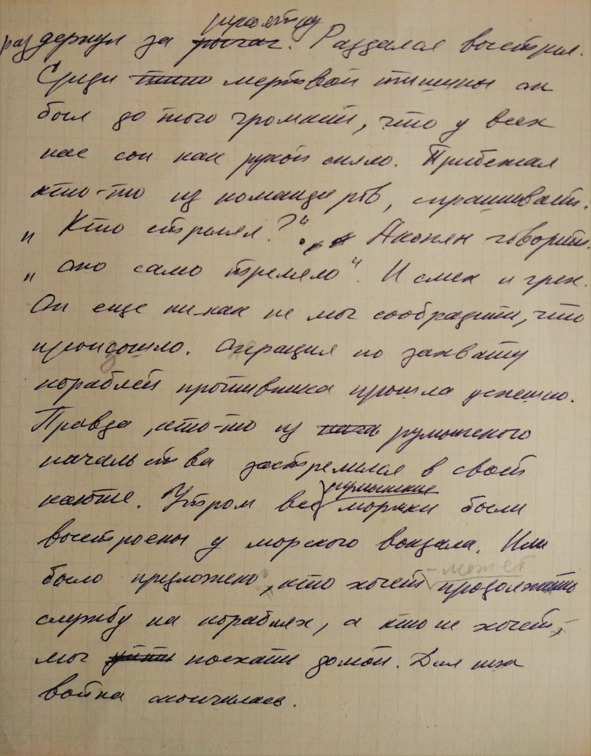 рукоятку
раз дернул за рычаг. Раздался выстрел.
Среди тиши мертвой тишины он
был до того громкий, что у всех
нас сон как рукой сняло. Прибежал
кто-то из командиров, спрашивает.
„Кто стрелял?“ Акопян говорит.
„оно само стреляло“. И смех и грех.
Он еще ни-как не мог сообразить, что
произошло. Операция по захвату
кораблей противника прошла успешно.
Правда, кто-то из румынского
начальства застрелился в своей
каюте. Утром все моряки были
румынские
выстроены у морского вокзала. Им
было предложено, кто хочет продолжать
может
службу на кораблях, а кто не хочет,
мог уйти поехать домой. Для них
война окончилась.